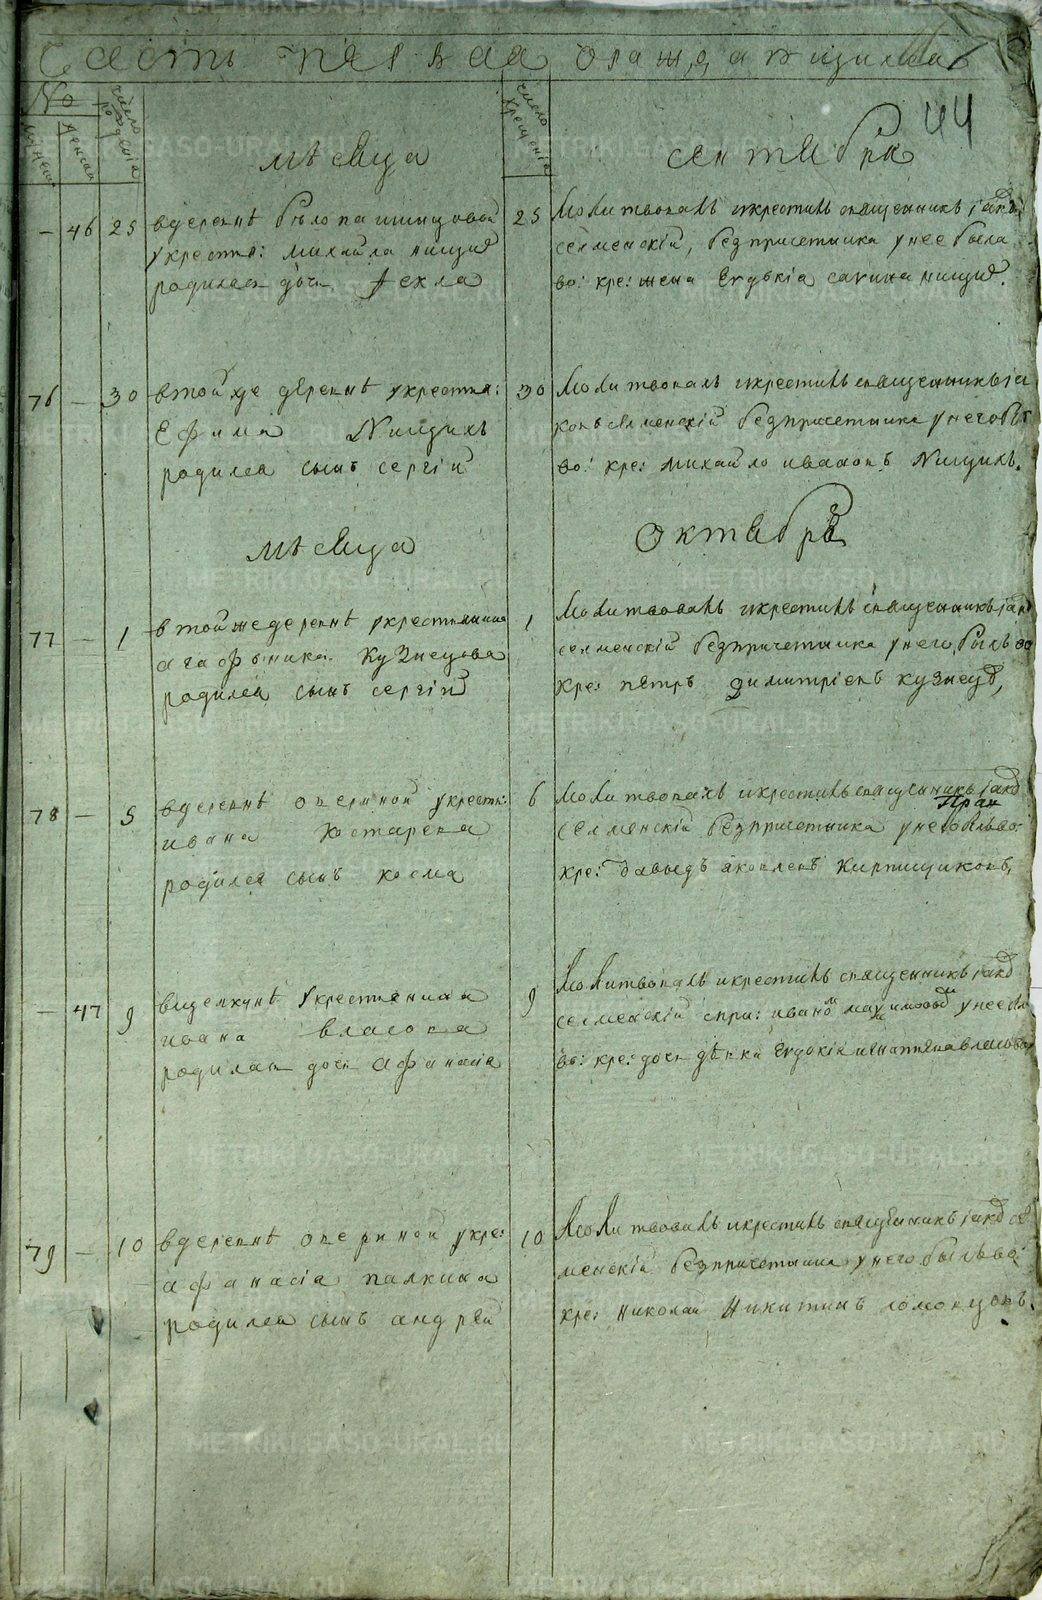 Часть первая о раждающихся
44
№
мужеска
женска
число рожденiя
число крещенiя
мѣсяца сентября
— 46 25 в деревнѣ бѣлопашинцовой
у крестья: михайла нищих
родилась дочь Фекла
25 Молитвовалъ и крестилъ священникъ iаковъ
селменскiй, без причетника у нее была
во: кре: жена Евдокiа савина нищих.
76 — 30 в той же деревнѣ у крестья:
Ефима Нищихъ
родился сынъ сергiй
30 Молитвовалъ и крестилъ священникъ iа
ковъ селменскiй без причетника у него бы
во: кре: михайло ивановъ Нищихъ.
мѣсяца октября
77 — 1 в той же деревнѣ у крестьянина
агафоника Кузнецова
родился сынъ сергiй
1 Молитвовалъ и крестилъ священникъ iаков
селменскiй без причетника у него былъ во
кре: пѣтръ димитрiевъ кузнецов,
78 — 5 в деревнѣ опериной у крестья:
ивана Костарева
родился сынъ косма
6 Молитвовалъ и крестилъ священникъ iаков
селменскiй без причетника у него былъ во:
кре: давыдъ яковлевъ Кирпищиковъ,
— 47 9 в щелкунѣ у крестьянина
ивана власова
родилась дочь афанасiа
9 Молитвовалъ и крестилъ священникъ iаков
селменскiй с при: иваном максимовым у нее была
во: кре: дочь дѣвка Евдокiа игнатьева власова
79 — 10 в деревнѣ опериной у кре:
афанасiа палкина
родился сынъ андрей
10 Молитвовалъ и крестилъ священникъ iаков сел
менскiй без причетника у него былъ во:
кре: николай Никитинъ ломовцовъ.